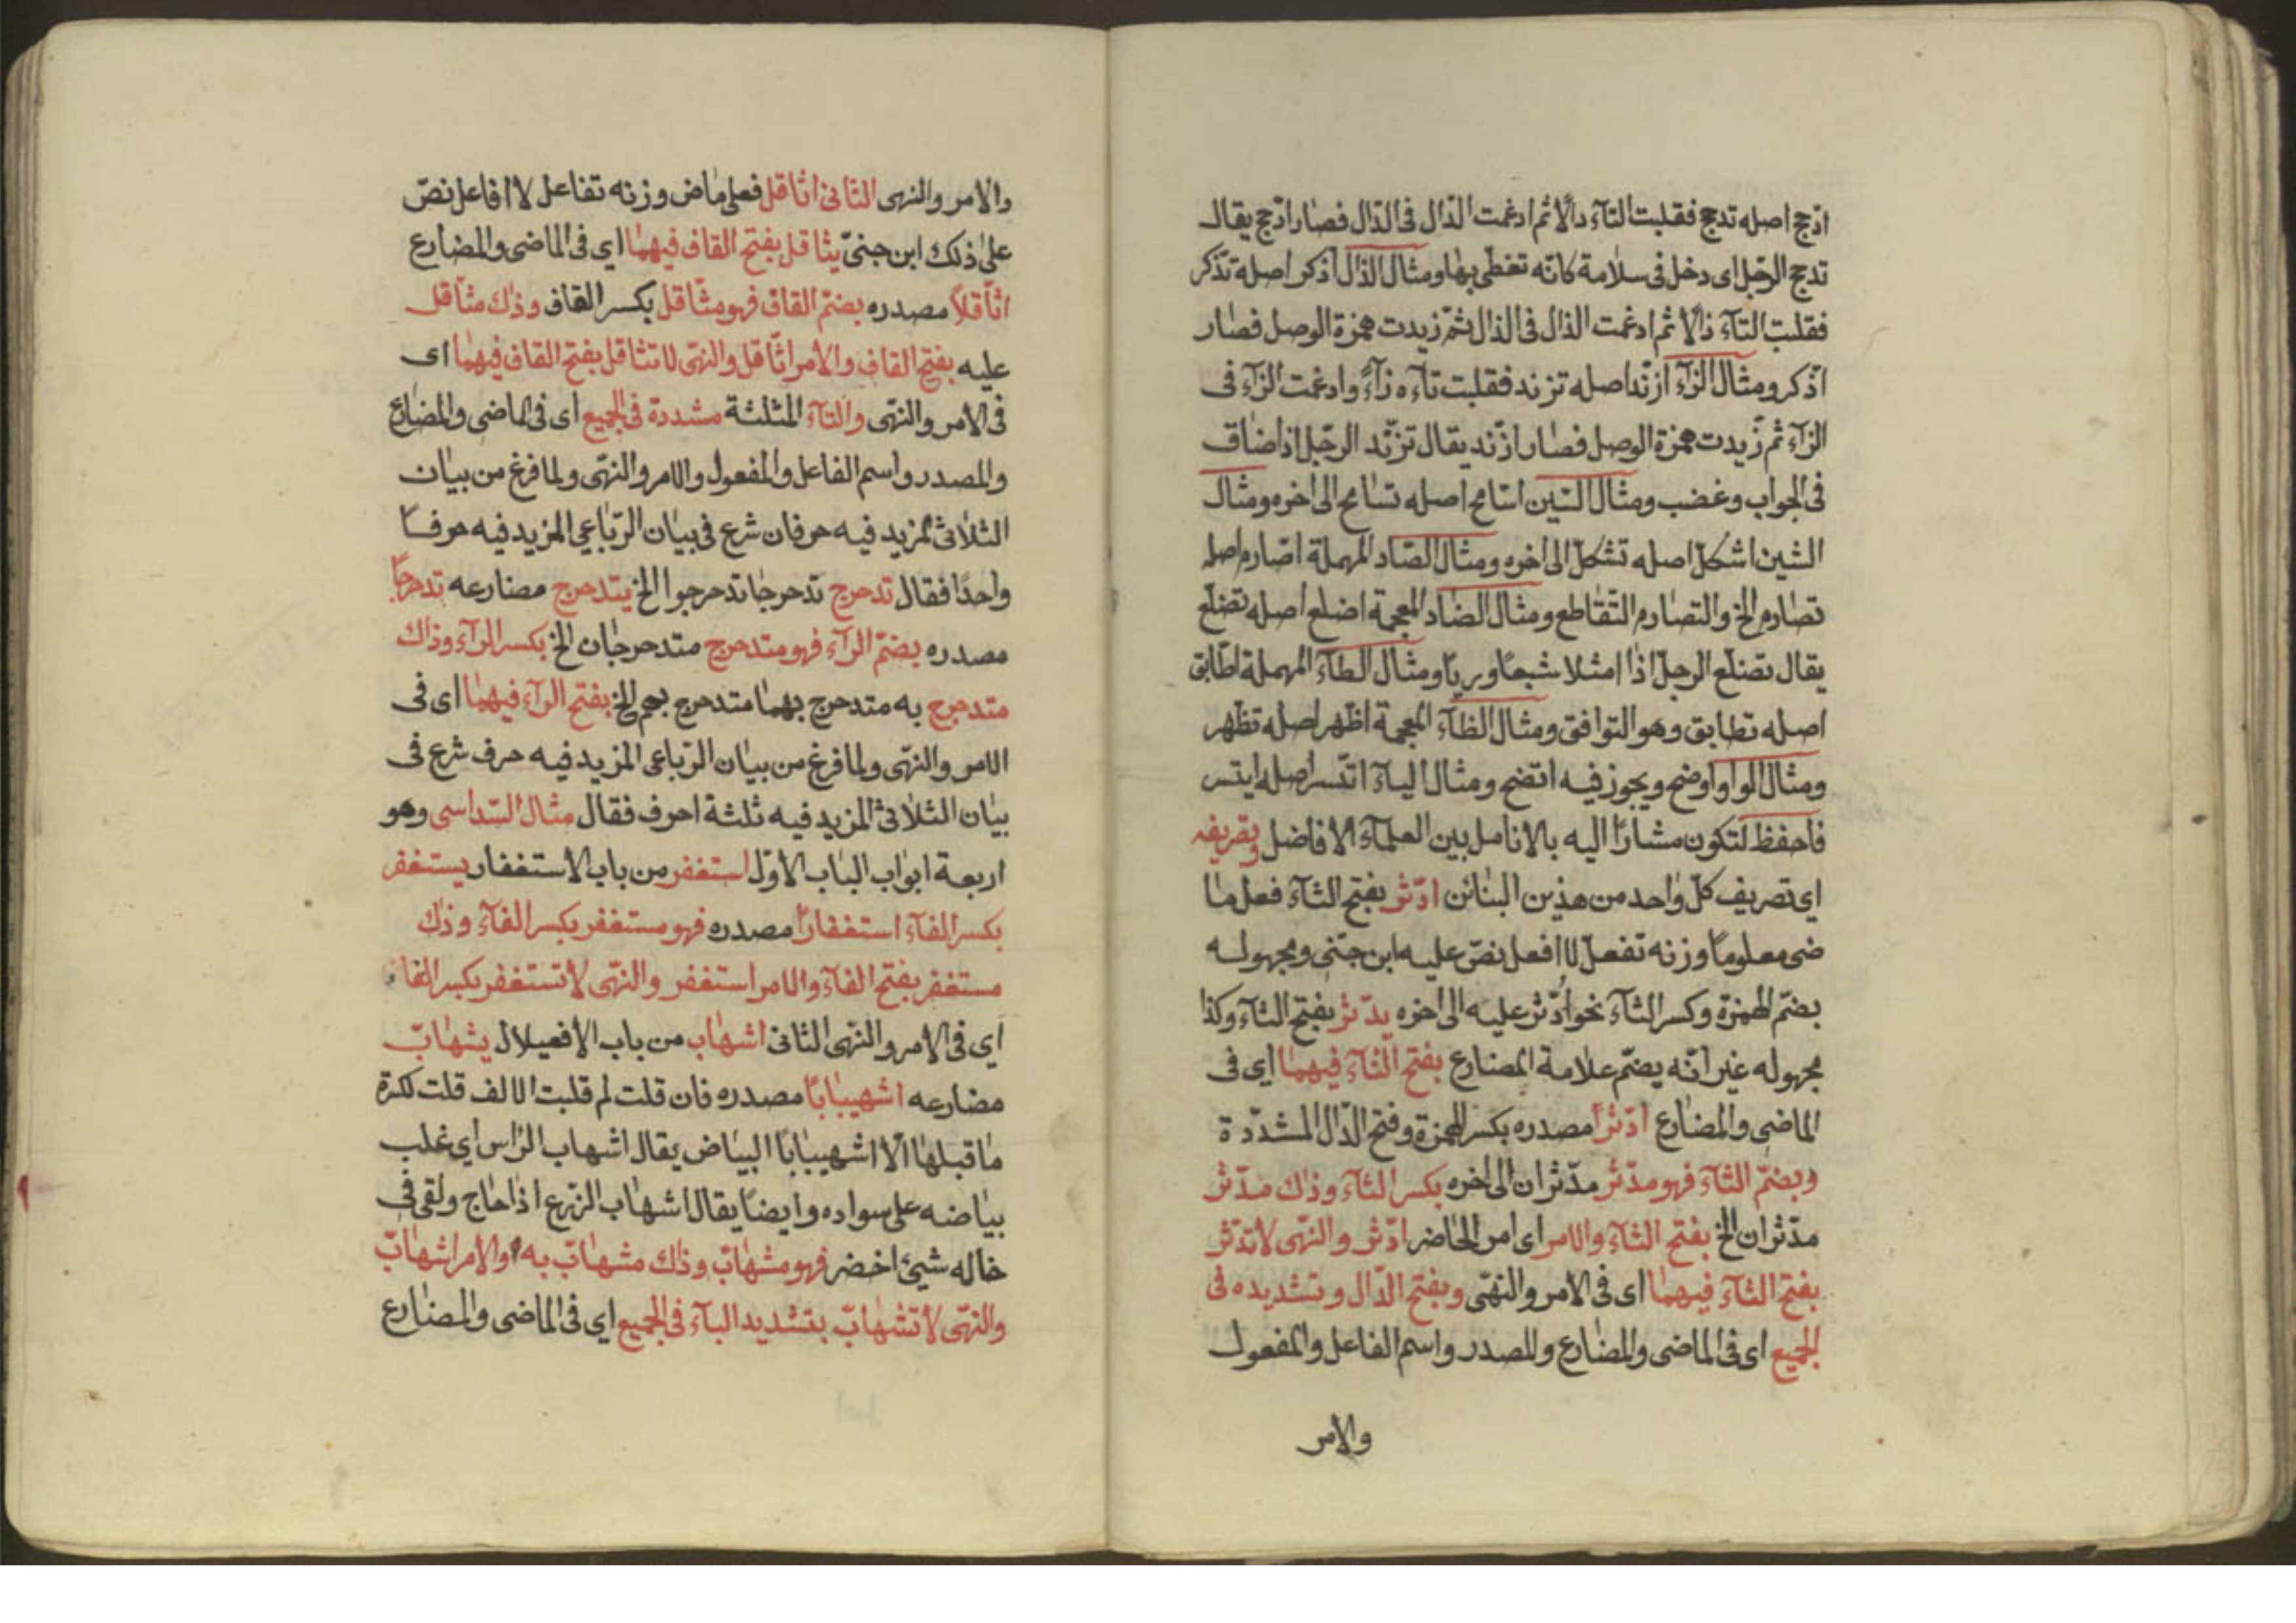 ادّجج اصله تدجج فقلبت التآء دالًا ثم ادغمت الدّال فى الدّال فصار ادّجج يقال
تدجج الرّجل اى دخل فى سلامة كانّه تغطى بها ومثال الذال اذّكر اصله تذكر
فقلبت التآء ذالًا ثم ادغمت الذال فى الذال ثمّ زيدت همزة الوصل فصار
اذّكر ومثال الزآء ازّند اصله تزند فقلبت تآءه زآءً وادغمت الزآء فى
الزآء ثم زيدت همزة الوصل فصار ازّند يقال تزنّد الرجل اذا ضاق
فى الجواب وغضب ومثال السّين اسّامح اصله تسامح الى اخره ومثال
الشين اشكلّ اصله تشكلّ الى اخره ومثال الصّاد المهملة اصّارم اصله
تصارم الخ والتصارم التّقاطع ومثال الضاد المعجمة اضلع اصله تضلّع
يقال تضلّع الرجل اذا امتلا شبعًا وريًا ومثال الطآء المهملة اطّابق
اصله تطابق وهو التوافق ومثال الظآء المعجمة اظهر اصله تظهر
ومثال الواو اوضح ويجوز فيه اتضح ومثال اليآء اتّسر اصله ايتسر
فاحفظ لتكون مشارًا اليه بالانامل بين العلمآء الافاضل وتصريفه
اى تصريف كلّ واحد من هذين البنائن ادّثّر بفتح الثآء فعل ما
ضى معلومًا وزنه تفعلّ لا افعل نصّ عليه ابن جنّى ومجهوله
بضمّ الهمزة وكسر الثآء نحو ادّثر عليه الى اخره يدّثر بفتح الثآء وكذا
مجهوله غير انّه يضمّ علامة المضارع بفتح الثآء فيهما اى فى
الماضى والمضارع ادّثرًا مصدره بكسر الهمزة وفتح الدّال المشدّدة
وبضمّ الثآء فهو مدّثر مدّثران الى اخره بكسر الثآء وذاك مدّثر
مدّثران الخ بفتح الثآء والامر اى امر الحاضر ادّثر والنهّى لا تدّثر
بفتح الثآء فيهما اى فى الامر والنهّى وبفتح الدّال وتشديده فى
الجميع اى فى الماضى والمضارع والمصدر واسم الفاعل والمفعول
والامر
والامر والنهى الثانى اثاقل فعل ماض وزنه تفاعل لا افاعل نصّ
على ذلك ابن جنىّ يثاقل بفتح القاف فيهما اى فى الماضى والمضارع
اثّاقلًا مصدره بضمّ القاف فهو مثّاقل بكسر القاف وذاك مثّاقل
عليه بفتح القاف والامر اثّاقل والنهّى لا تثاقل بفتح القاف فيهما اى
فى الامر والنهّى والثآء المثلثة مشددة فى الجميع اى فى الماضى والمضارع
والمصدر واسم الفاعل والمفعول والامر والنهّى ولما فرغ من بيان
الثلاثى المزيد فيه حرفان شرع فى بيان الرّباعى المزيد فيه حرفًا
واحدًا فقال تدحرج تدحرجا تدحرجوا الخ يتدحرج مضارعه تدحرجًا
مصدره بضمّ الرآء فهو متدحرج متدحرجان الخ بكسر الرآء وذاك
متدحرج به متدحرج بهما متدحرج بهم الخ بفتح الرآء فيهما اى فى
الامر والنهّى ولما فرغ من بيان الرّباعى المزيد فيه حرف شرع فى
بيان الثلاثى المزيد فيه ثلثة احرف فقال مثال السّداسى وهو
اربعة ابواب الباب الاوّل استغفر من باب الاستغفار يستغفر
بكسر الفآء استغفارًا مصدره فهو مستغفر بكسر الفآء وذاك
مستغفر بفتح الفآء والامر استغفر والنهّى لا تستغفر بكسر الفآء
اى فى الامر والنهّى الثانى اشهاب من باب الافعيلال يشهابّ
مضارعه اشهيبابًا مصدره فان قلت لم قلبت الالف قلت لكسرة
ما قبلها الّا اشهيبابًا البياض يقال اشهاب الرأس اى غلب
بياضه على سواده وايضًا يقال اشهاب الزرع اذا هاج ولقى فى
خاله شيئ اخضر فهو مشهابّ وذاك مشهابّ به والامر اشهابّ
والنهّى لا تشهابّ بتشديد البآء فى الجميع اى فى الماضى والمضارع